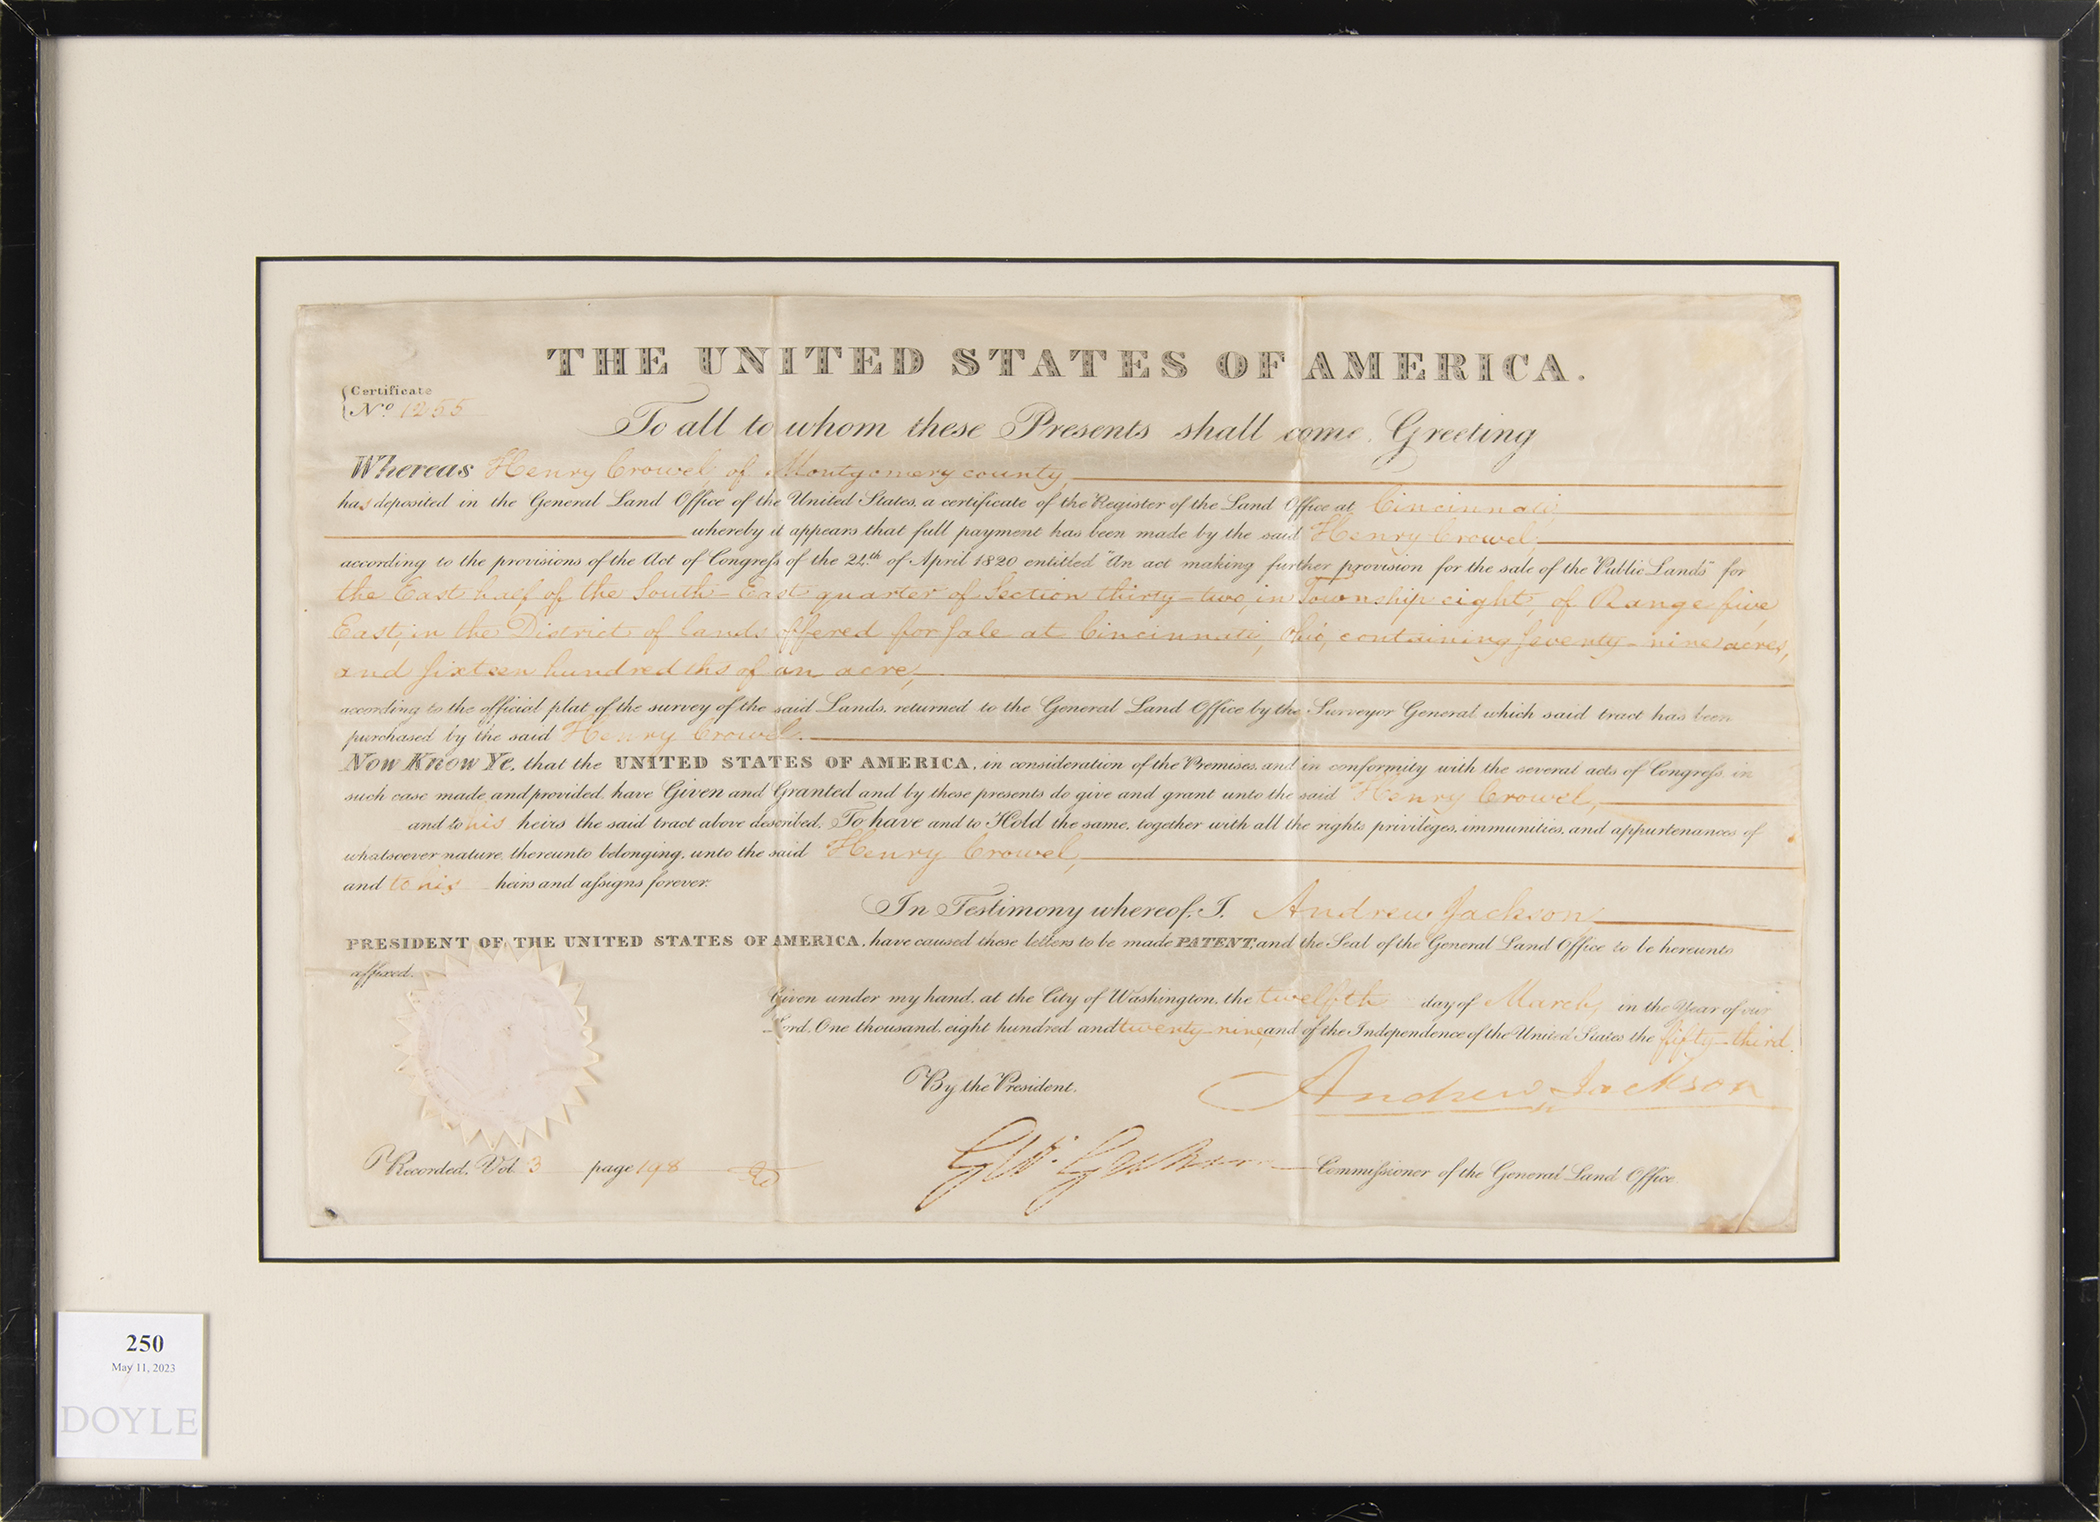 THE UNITED STATES OF AMERICA.
Certificate
No. 1255
To all to whom these Presents shall come, Greeting
Whereas Henry Crowel, of Montgomery county,
has deposited in the General Land Office of the United States, a certificate of the Register of the Land Office at Cincinnati,
whereby it appears that full payment has been made by the said Henry Crowel,
according to the provisions of the Act of Congress of the 24th of April 1820 entitled "An act making further provision for the sale of the Public Lands" for
the East half of the South-East quarter of Section thirty-two, in Township eight, of Range five,
East, in the District of lands offered for sale at Cincinnati, Ohio, containing seventy-nine acres,
and sixteen hundredths of an acre,
according to the official plat of the survey of the said Lands, returned to the General Land Office by the Surveyor General which said tract has been
purchased by the said Henry Crowel.
Now Know Ye, that the UNITED STATES OF AMERICA, in consideration of the Premises, and in conformity with the several acts of Congress, in
such case made and provided, have Given and Granted and by these presents do give and grant unto the said Henry Crowel,
and to his heirs the said tract above described: To have and to Hold the same, together with all the rights, privileges, immunities, and appurtenances of
whatsoever nature, thereunto belonging, unto the said Henry Crowel,
and to his heirs and assigns forever.
In Testimony whereof, I, Andrew Jackson
PRESIDENT OF THE UNITED STATES OF AMERICA, have caused these letters to be made PATENT, and the Seal of the General Land Office to be hereunto
affixed.
Given under my hand, at the City of Washington, the twelfth day of March, in the Year of our
Lord, One thousand, eight hundred and twenty-nine, and of the Independence of the United States the fifty-third.
By the President.
Andrew Jackson
Gw. Graham Commissioner of the General Land Office.
Recorded, Vol. 3 page 198
250
May 11, 2023
DOYLE